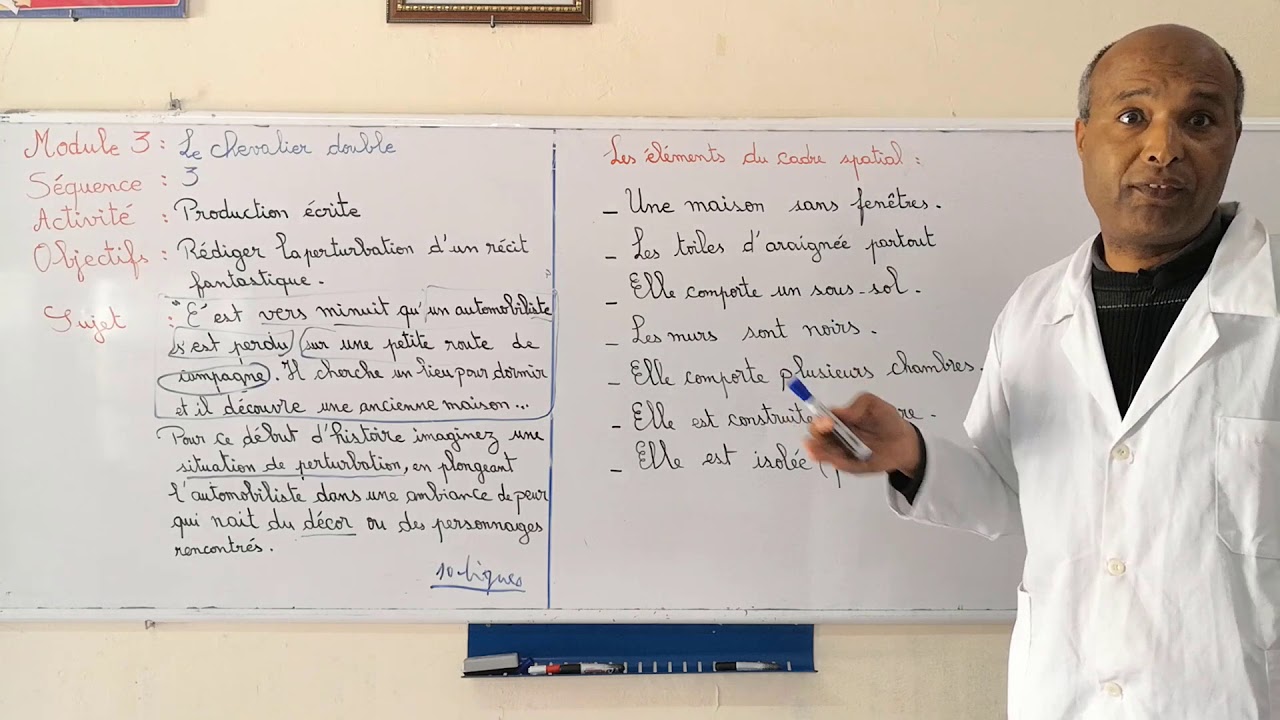 Module 3 : Le chevalier double
Séquence : 3
Activité : Production écrite
Objectifs : Rédiger la perturbation d'un récit
fantastique.
Sujet : "C'est vers minuit qu'un automobiliste
s'est perdu sur une petite route de
campagne. Il cherche un lieu pour dormir
et il découvre une ancienne maison...
Pour ce début d'histoire imaginez une
situation de perturbation, en plongeant
l'automobiliste dans une ambiance de peur
qui nait du décor ou des personnages
rencontrés.
10 lignes
Les éléments du cadre spatial :
_ Une maison sans fenêtres.
_ Les toiles d'araignée partout
_ Elle comporte un sous-sol.
_ Les murs sont noirs.
_ Elle comporte plusieurs chambres.
_ Elle est construite
_ Elle est isolée (